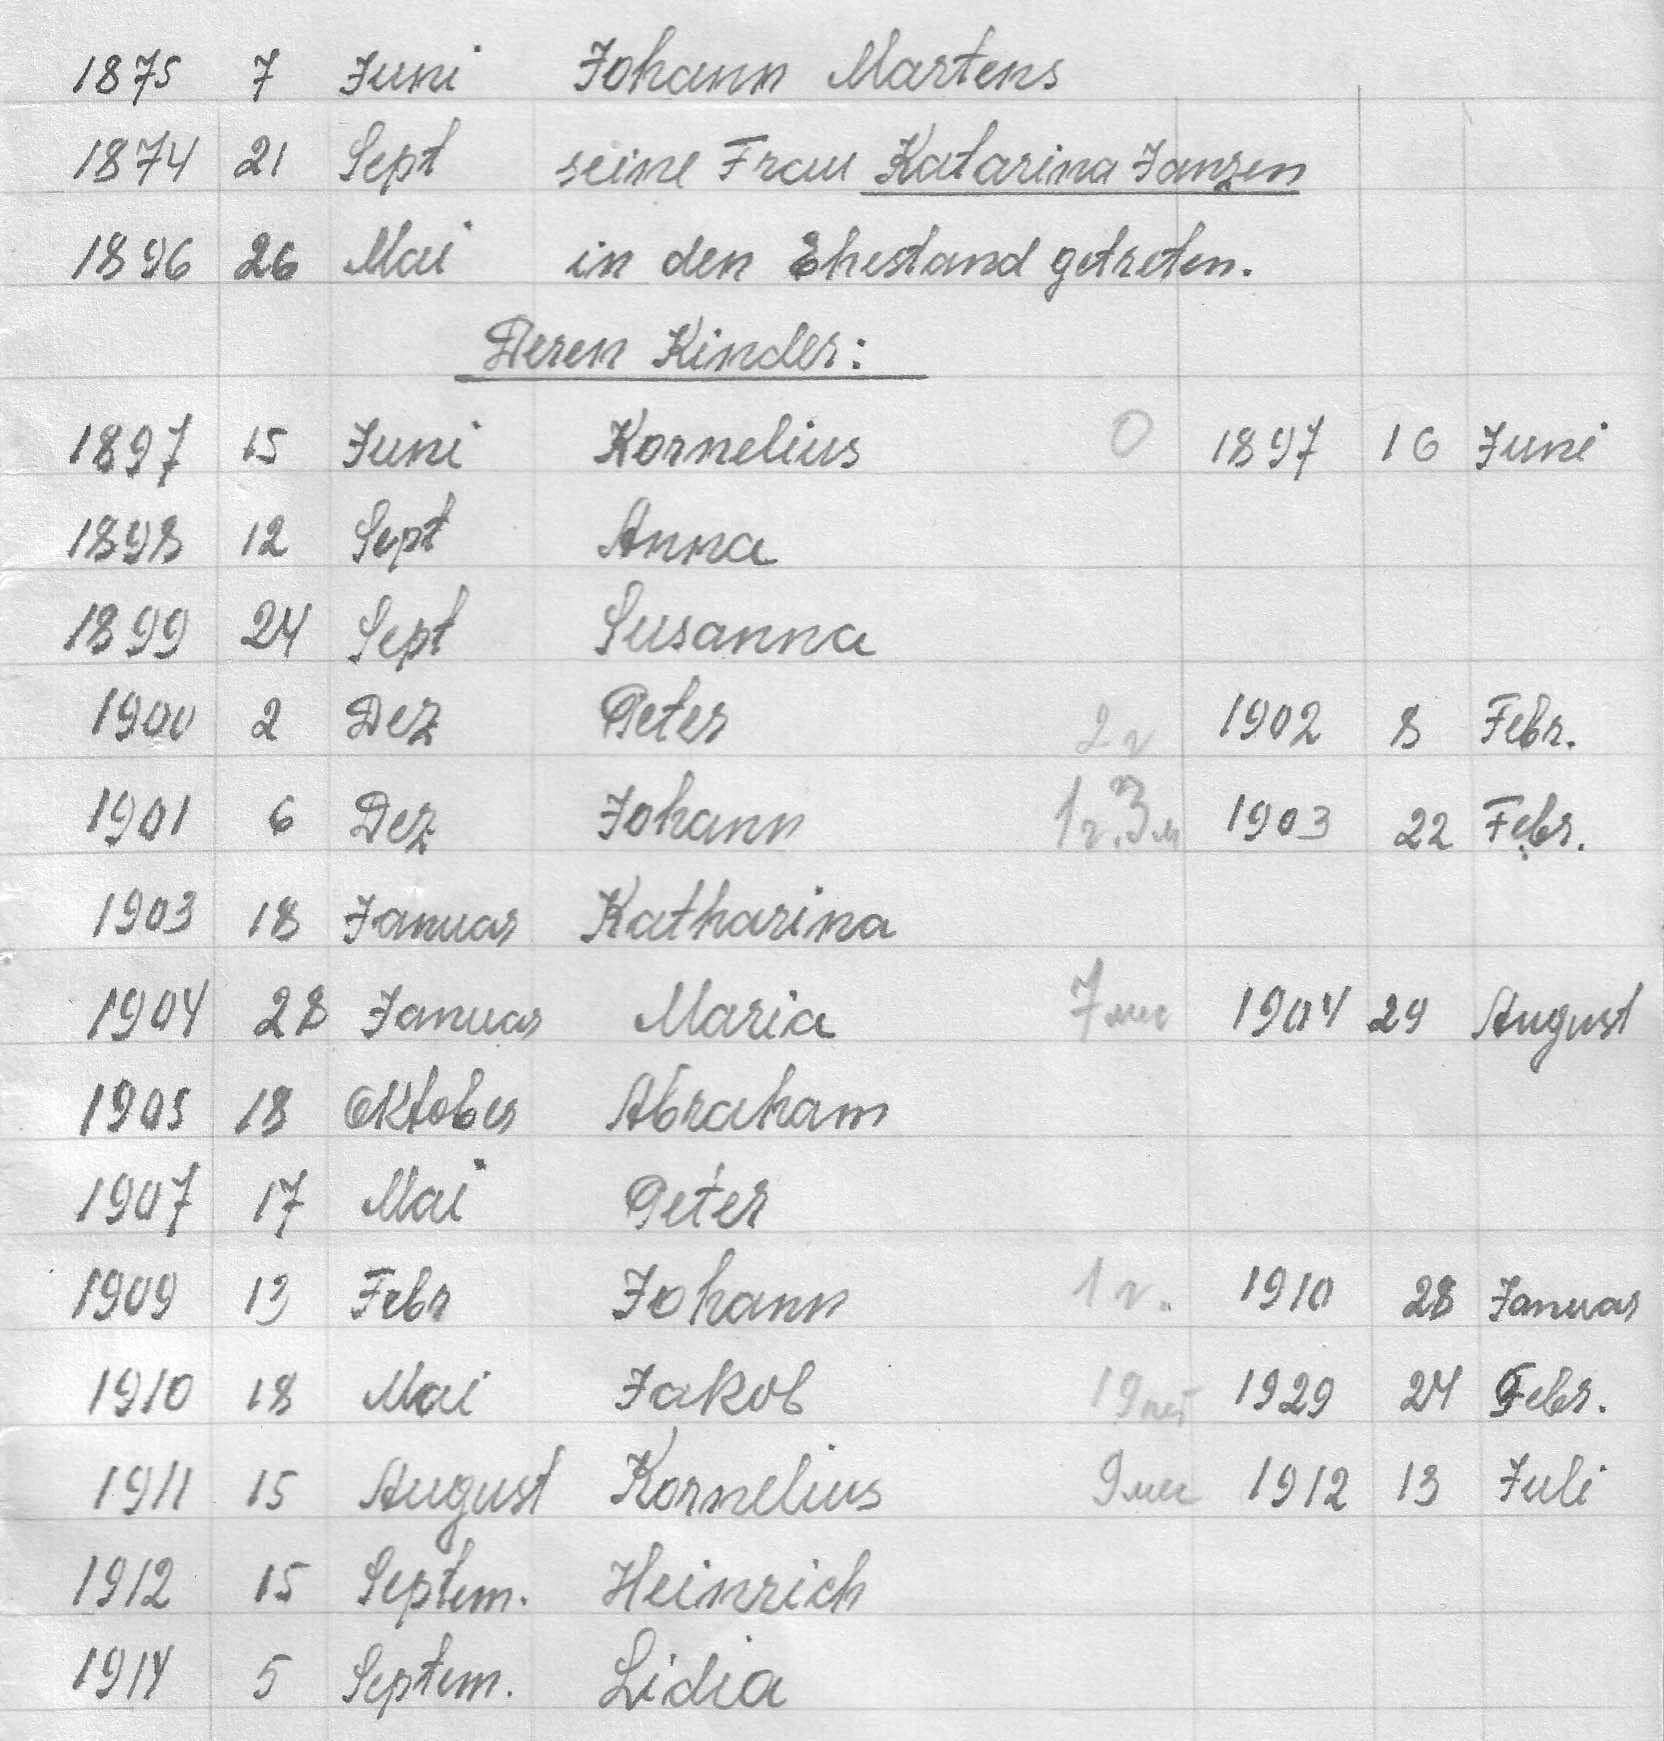 1875 7 Juni Johann Martens
1874 21 Sept seine Frau Katarina Janzen
1896 26 Mai in den Ehestand getreten.
Deren Kinder:
1897 15 Juni Kornelius 0 1897 16 Juni
1898 12 Sept Anna
1899 24 Sept Susanna
1900 2 Dez Peter 2 г 1902 8 Febr.
1901 6 Dez Johann 1 г. 3 м 1903 22 Febr.
1903 18 Januar Katharina
1904 28 Januar Maria 7 мес 1904 29 August
1905 18 Oktober Abraham
1907 17 Mai Peter
1909 13 Febr Johann 1 г. 1910 28 Januar
1910 18 Mai Jakob 19 лет 1929 24 Febr.
1911 15 August Kornelius 9 мес 1912 13 Juli
1912 15 Septem. Heinrich
1914 5 Septem. Lidia